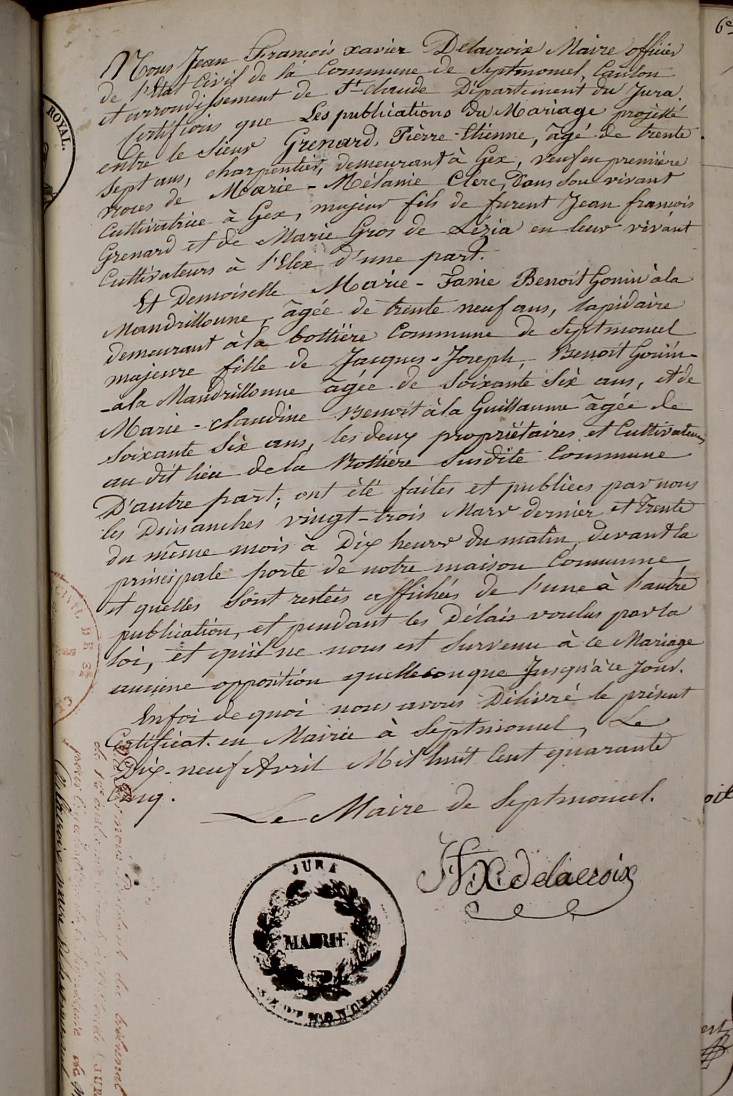 Nous Jean François xavier Delacroix Maire officier
de l'Etat Civil de la Commune de Septmoncel, Canton
et arrondissement de St. Claude Département du Jura.
Certifions que Les publications du Mariage projetté
entre le Sieur Grenard, Pièrre-Etienne, âgé de trente
sept ans, charpentier, demeurant à Gex, veuf en première
noces de Marie-Mélanie Clerc, dans son vivant
Cultivatrice à Gex, majeur fils de furent Jean françois
Grenard et de Marie Gros de Lézia en leur vivant
Cultivateurs à l'Elex d'une part.
Et Demoiselle Marie-Fanie Benoit Gonin à la
Mandrillonne, âgée de trente neuf ans, lapidaire
demeurant à la bottière Commune de Septmoncel
majeure fille de Jacques-Joseph Benoit Gonin-
-à la Mandrillonne âgée de Soixante Six ans, et de
Marie-Claudine Benoit à la Guillaume âgée de
Soixante Six ans, les deux propriétaires et Cultivateurs
au dit lieu de la Bottière Susdite Commune
D'autre part; ont été faites et publiées par nous
les Dimanches vingt-trois Mars dernier et trente
du même mois à Dix heurs du matin, devant la
principale porte de notre maison Commune,
et quelles Sont restées affichées de l'une à l'autre
publication, et pendant les Délais voulus par la
loi, et qu'il ne nous est Survenu à ce Mariage
aucune opposition quelleconque Jusqu'à ce Jour.
En foi de quoi nous avons Délivré le présent
Certificat en Mairie à Septmoncel, Le
Dix-neuf Avril Mil huit Cent quarante
Cinq.
Le Maire de Septmoncel.
JFX Delacroix
JURA
MAIRIE
SEPTMONCEL
ROYAL.
CIVIL DE
du tribunal
6e